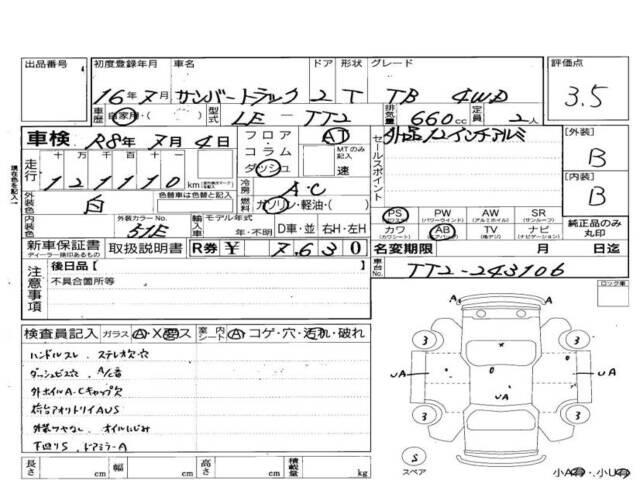 出品番号 初度登録年月 車名 ドア 形状 グレード 評価点
16年7月 サンバートラック 2 T TB 4WD 3.5
車歴 自家用・( ) 型式 LE-TT2 排気量 660cc 定員 2人
車検 R8年7月4日 フロア・コラム・ダッシュ AT セールスポイント 外品12インチアルミ
MTのみ記入 速
[外装] B
現在色を記入
走行 十 万 千 百 十 一
121110 km
冷房 A・C
[内装] B
外装色 白 色替車は色替と記入 燃料 ガソリン・軽油・( )
PS PW AW SR
(パワステ) (パワーウインド) (アルミホイル) (サンルーフ)
内装色 外装カラーNo. 51E 輸入車 モデル年式 年・不明 D車・並 右H・左H
カワ AB TV ナビ
(カワシート) (エアバック) (ナビゲーション)
純正品のみ丸印
新車保証書 取扱説明書 R券 ¥ 7,630 名変期限 月 日迄
ディーラー捺印あるもの
注意事項 後日品【 】 車台No. TT2-243106
不具合箇所等
ロック車
検査員記入 ガラス A・X・ス 室内シート A・コゲ・穴・汚れ・破れ
ハンドルスレ、ステレオ欠穴
ダッシュビス穴、
外ホイルA・Cキャップ欠
荷台アオリトリイAUS
オイルにじみ
下回りS、ドアミラーA
A A
3 3
UA UA
3 3
S
スペア
長さ cm 幅 cm 高さ cm 積載量 kg
小A有・小U有